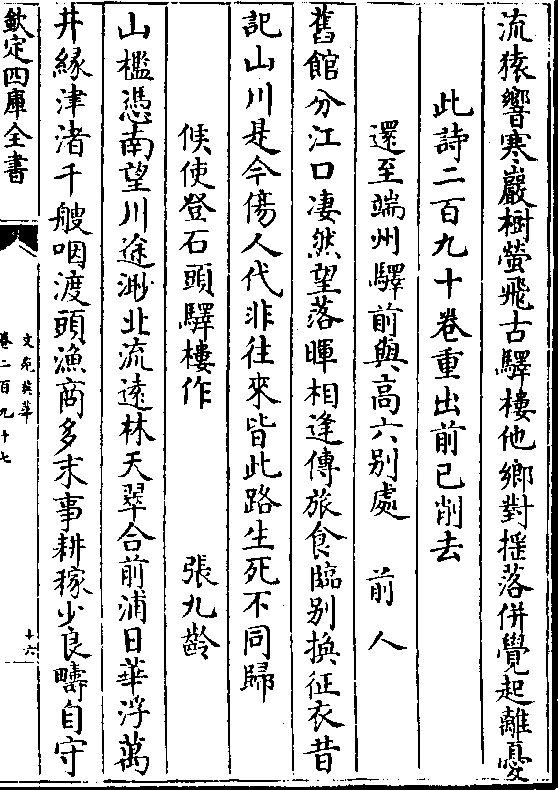 流猿響寒巖樹螢飛古驛樓他鄉對揺落併覺起離憂
此詩二百九十卷重出前已削去
還至端州驛前與高六别處　前人
舊館分江口凄然望落暉相逢傳旅食臨别換征衣昔
記山川是今傷人代非往來皆此路生死不同歸
候使登石頭驛樓作　張九齡
山檻憑南望川途渺北流遠林天翠合前浦日華浮萬
井緣津渚千艘咽渡頭漁商多末事耕稼少良疇自守
欽定四庫全書
文苑英華
卷二百九十七
十六